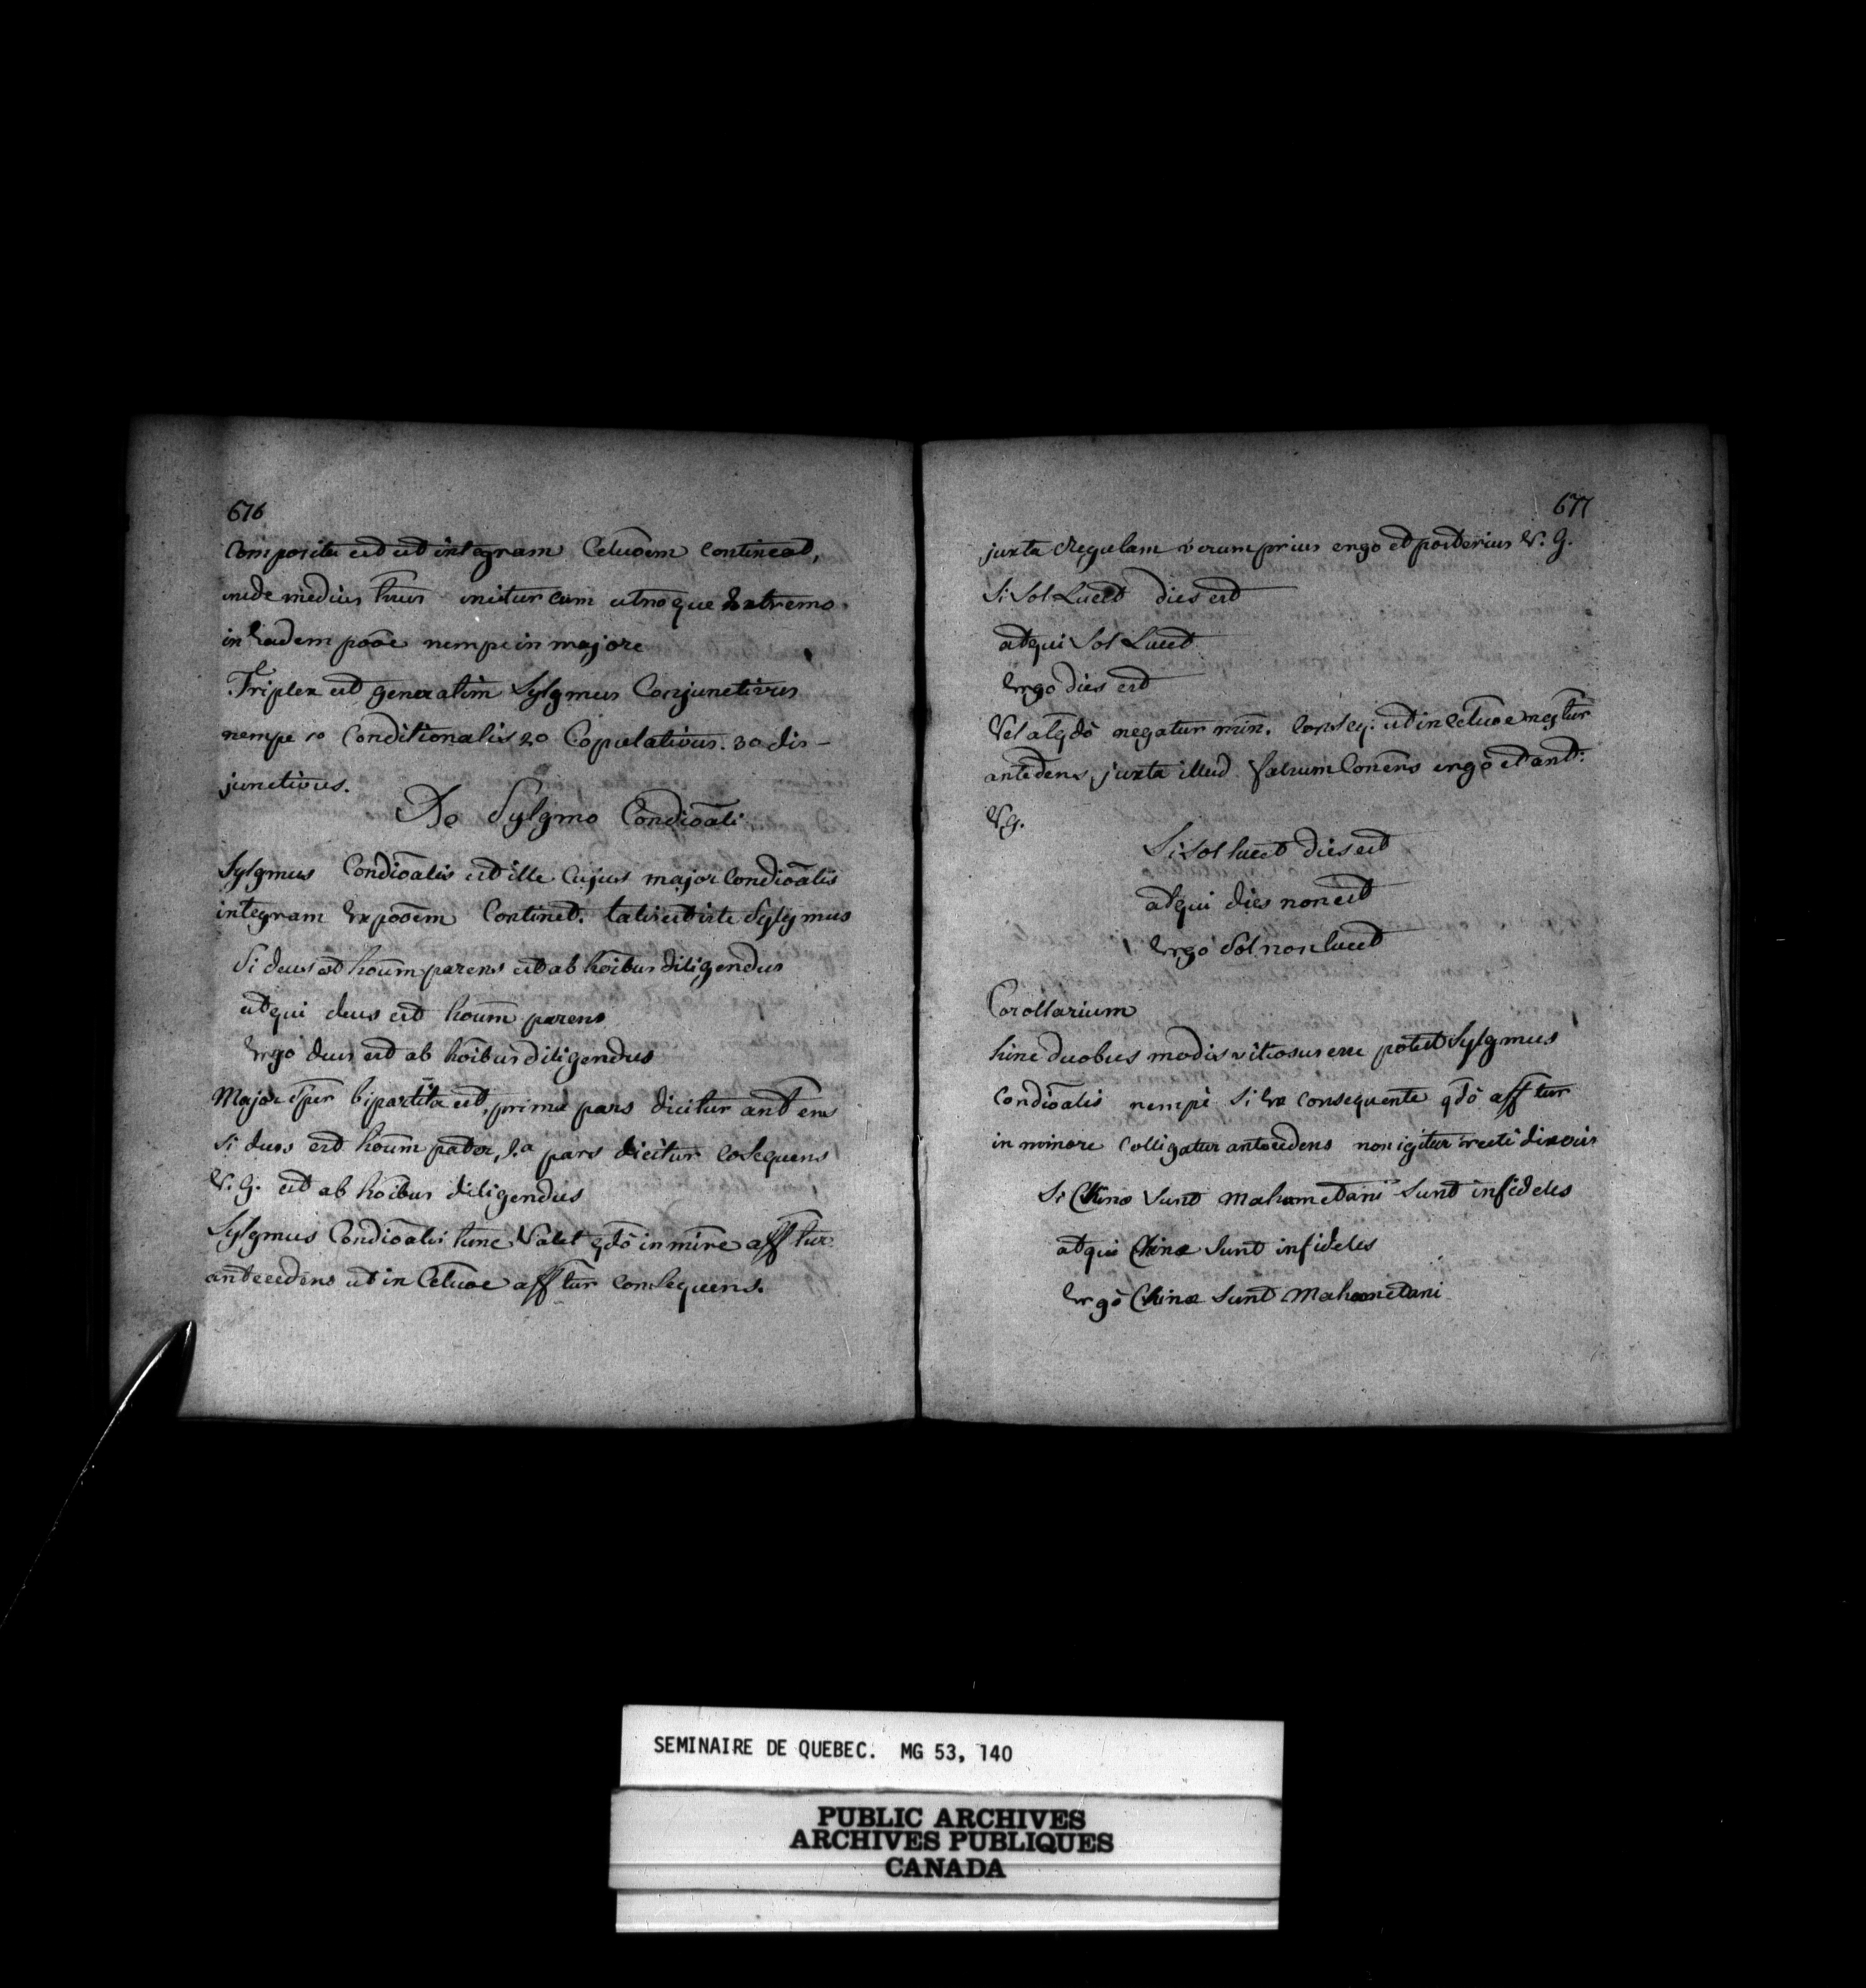 676
composita est ut integram Cclusoem contineat,
unde medius tnus unitur cum utroque Extremo
in Eadem poõe nempe in majore
Triplex est generatim Sylgmus Conjunctivus
nempe 1o Conditionalis 2o Copulativus. 3o dis-
junctivus.
De Sylgmo Condioãli
Sylgmus Condioãlis est ille Cujus major Condioãlis
integram Expooẽm Continet. talis est iste Sylgmus
Si deus est hoũm parens est ab hoĩbus diligendus
atqui deus est hoũm parens
Ergo deus est ab hoĩbus diligendus
Major bipartita est, prima pars dicitur antens
si deus est hoũm pater, 2.a pars dicitur cosequens
V. G. est ab hoĩbus diligendus
Sylgmus Condioãlis tunc Valet qdõ in minre afftur
antecedens ut in Cclusoe afftur consequens.
677
juxta Regulam verum prius ergo et posterius V. G.
Si Sol Lucet dies est
atqui Sol Lucet
Ergo dies est
Vel alqdõ negatur min. conseq: ut in Cclusoe negtur
antedens, juxta illud falsum Conens ergò et ant:
V.g.
Si Sol lucet dies est
atqui dies non est
Ergo Sol non lucet
Corollarium
hinc duobus modis vitiosus esse potest Sylgmus
Condioãlis nempè Si Ex consequente qdõ afftur
in minore Colligatur antecedens non igitur recte dixeris
Si Chinæ Sunt Mahametani Sunt infideles
atqui Chinæ Sunt infideles
Ergò Chinæ Sunt Mahametani
SEMINAIRE DE QUEBEC. MG 53, 140
PUBLIC ARCHIVES
ARCHIVES PUBLIQUES
CANADA